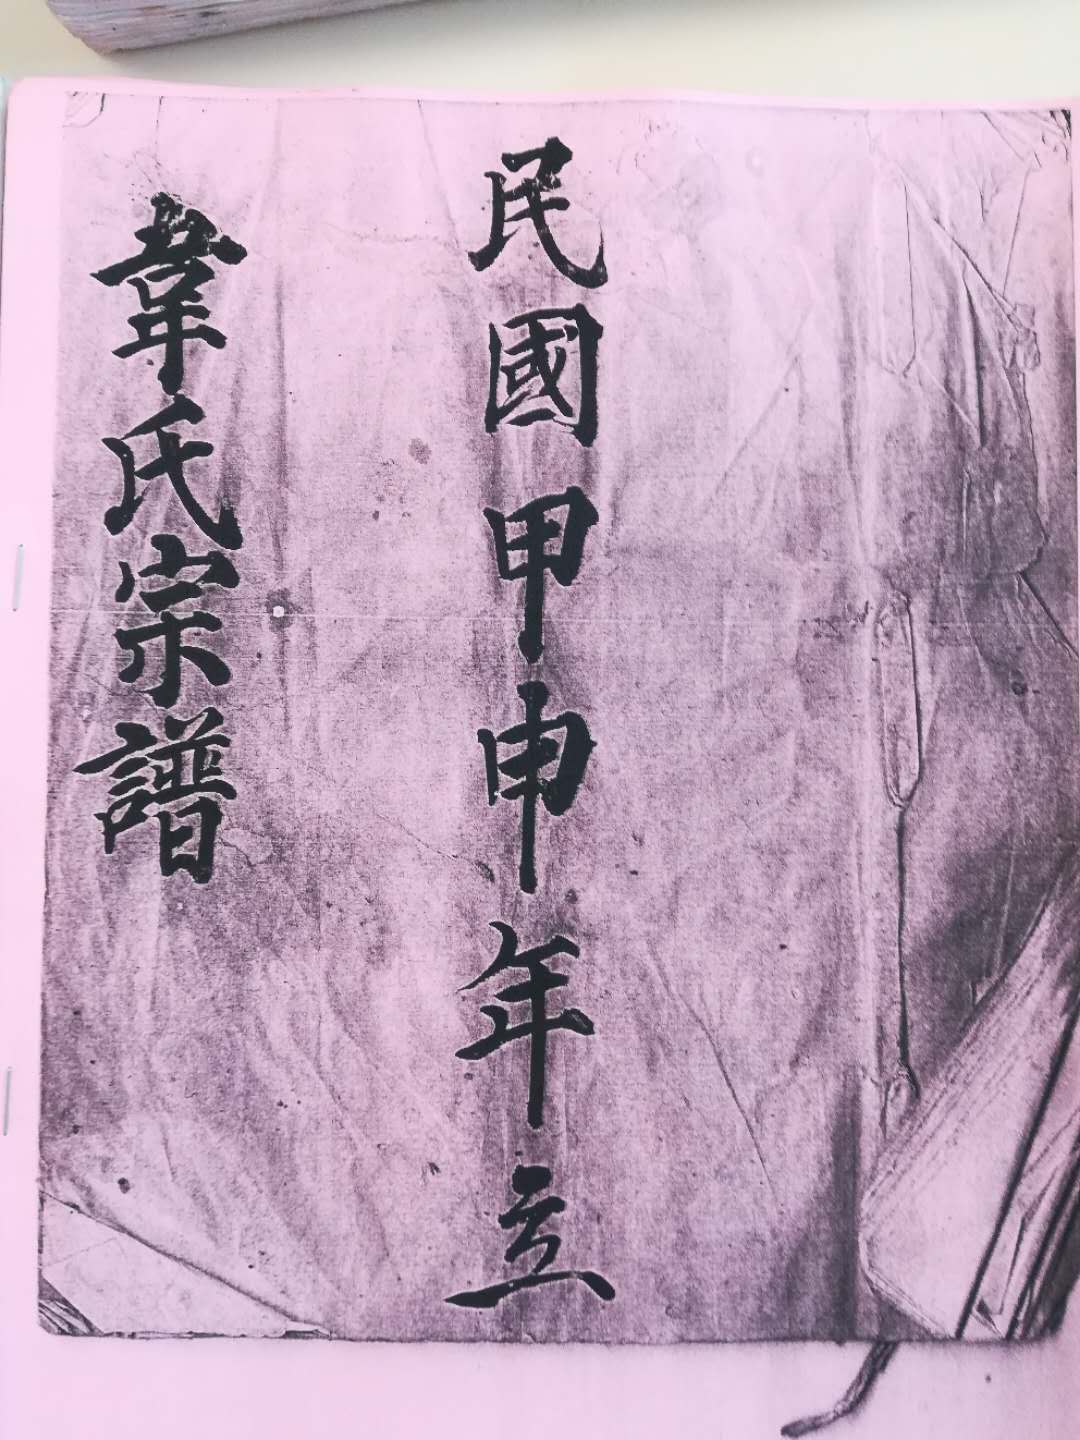 民國甲申年立
韋氏宗譜